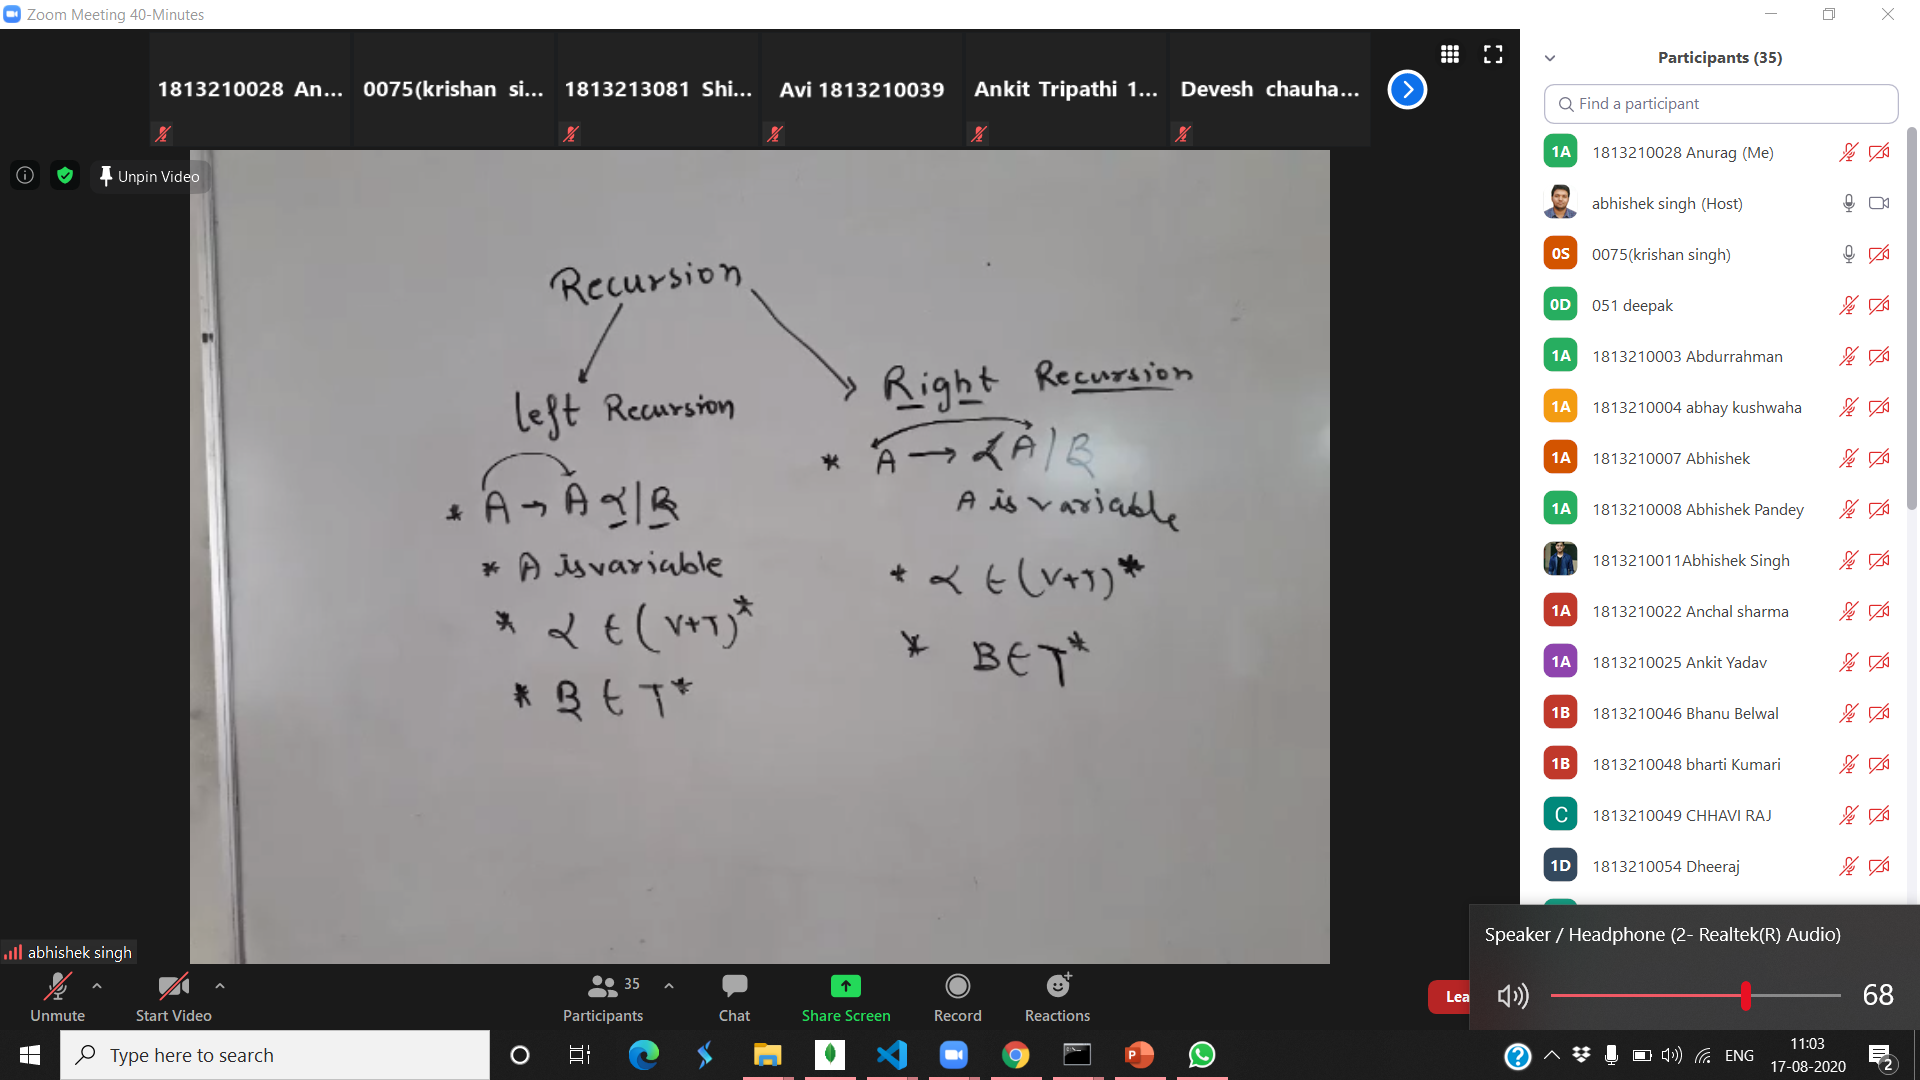 Zoom Meeting 40-Minutes
1813210028 An...
0075(krishan si...
1813213081 Shi...
Avi 1813210039
Ankit Tripathi 1...
Devesh chauha...
Unpin Video
Recursion
left Recursion
* A → A α | β
* A is variable
* α ∈ (V+T)*
* β ∈ T*
Right Recursion
* A → αA | β
A is variable
* α ∈ (V+T)*
* B ∈ T*
abhishek singh
Participants (35)
Find a participant
1A 1813210028 Anurag (Me)
abhishek singh (Host)
0S 0075(krishan singh)
0D 051 deepak
1A 1813210003 Abdurrahman
1A 1813210004 abhay kushwaha
1A 1813210007 Abhishek
1A 1813210008 Abhishek Pandey
1813210011Abhishek Singh
1A 1813210022 Anchal sharma
1A 1813210025 Ankit Yadav
1B 1813210046 Bhanu Belwal
1B 1813210048 bharti Kumari
C 1813210049 CHHAVI RAJ
1D 1813210054 Dheeraj
Speaker / Headphone (2- Realtek(R) Audio)
68
Unmute
Start Video
35
Participants
Chat
Share Screen
Record
Reactions
Lea
Type here to search
ENG
11:03
17-08-2020
2